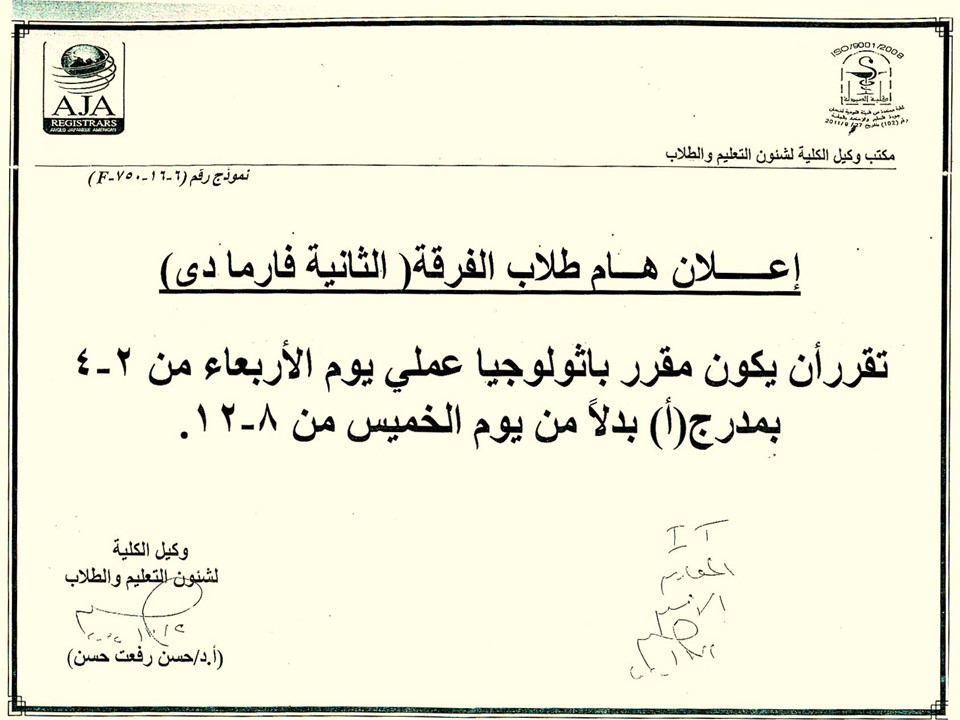 AJA
REGISTRARS
ANGLO JAPANESE AMERICAN
ISO/9001/2008
كلية الصيدلة
مكتب وكيل الكلية لشئون التعليم والطلاب
نموذج رقم (F-٧٥٠-١٦-٦)
إعـــــلان هـــام طلاب الفرقة( الثانية فارما دى)
تقررأن يكون مقرر باثولوجيا عملي يوم الأربعاء من ٢-٤
بمدرج(أ) بدلاً من يوم الخميس من ٨-١٢.
وكيل الكلية
لشئون التعليم والطلاب
(أ.د/حسن رفعت حسن)
IT